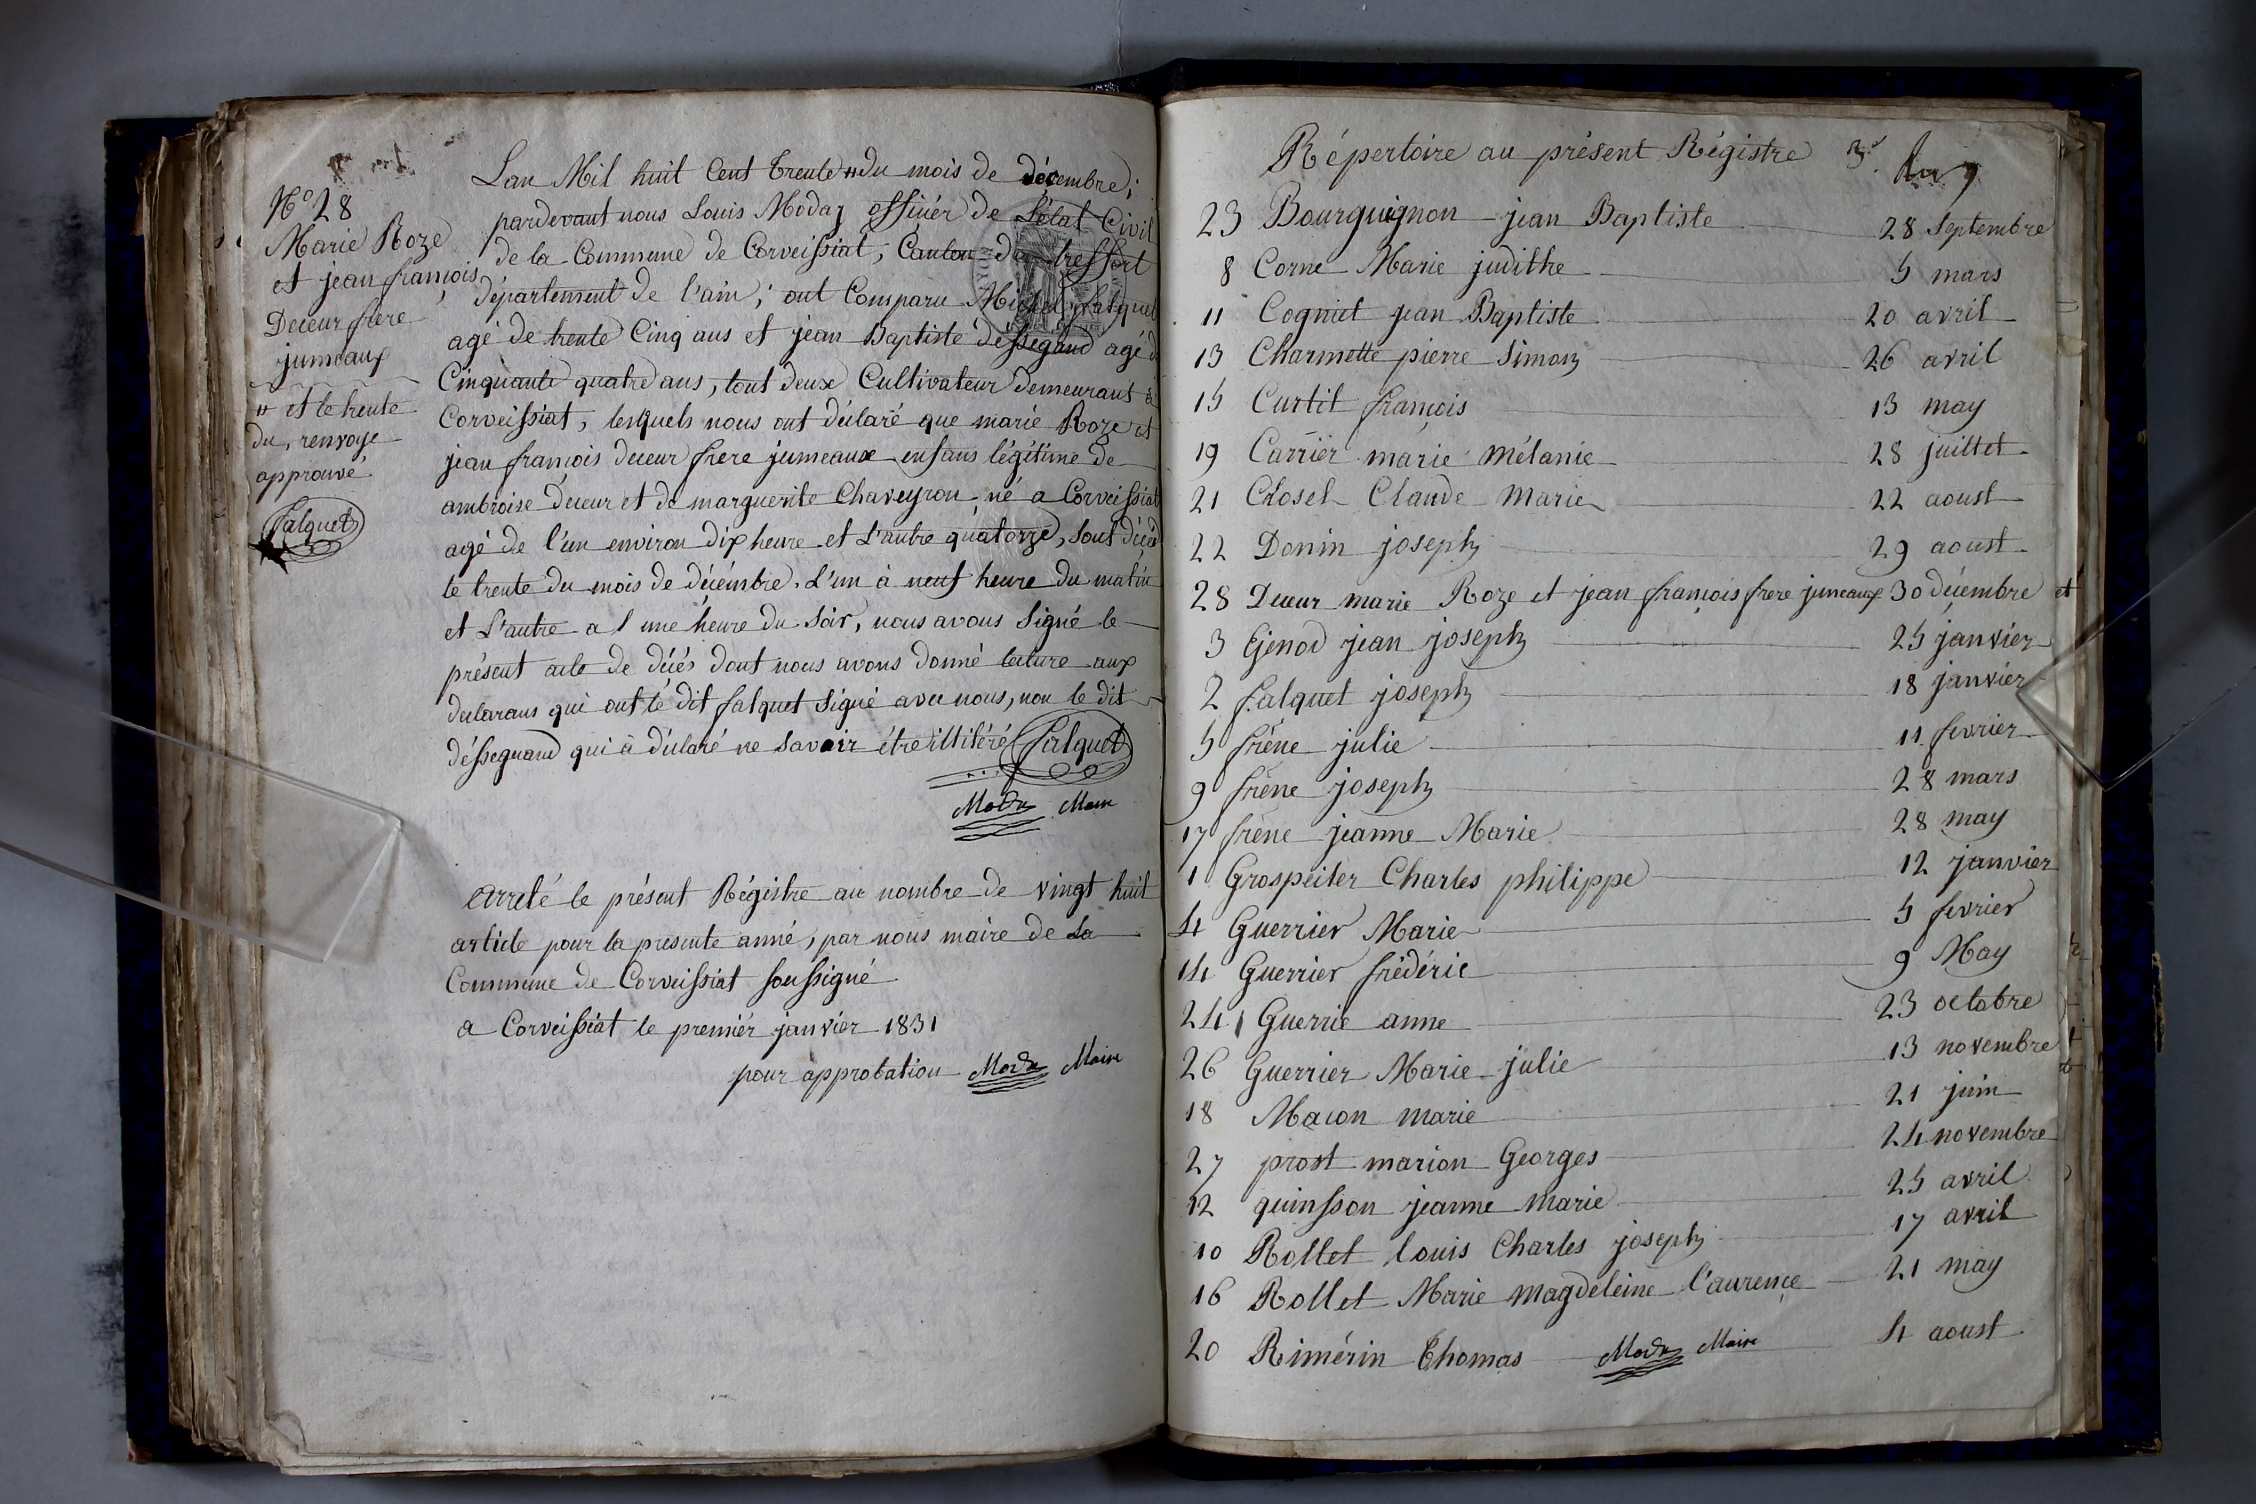 N° 28
Marie Roze
et jean françois
Deceur frere
jumeaux
" et le trente
du, renvoye
approuvé
falquet
Lan Mil huit Cent trente " du mois de décembre;
pardevant nous Louis Moday officiér de L'état Civil
de la Commune de Corveissiat, Canton de treffort
département de l'ain; ont Comparu Michel falquet
agé de trente Cinq ans et jean Baptiste désségnand agé d
Cinquante quatre ans, tout deux Cultivateur demeurant à
Corveissiat, lesquels nous ont déclaré que marie Roze et
jean françois deceur frere jumeaux enfans légitime de
ambroise deceur et de marguerite Chaveyron, né a Corveissiat
agé de l'un environ dix heure et L'autre quatorze, sont décéd
le trente du mois de décémbre. L'un à neuf heure du matin
et L'autre a l une heure du soir, nous avous signé le
présent acte de décés dont nous avons donné lecture aux
declarans qui ont lé dit falquet signé avec nous, non le dit
désségnand qui à déclaré ne savoir étre illitéré falquet
Moda Maire
arreté le présent Régistre au nombre de vingt huit
article pour la presente anné, par nous maire de La
Commune de Corveissiat soussigné
a Corveissiat le premiér janvier 1831
pour approbation Moda Maire
Répertoire au présent Régistre
23 Bourguignon jean Baptiste 28 septembre
8 Corne Marie judithe 5 mars
11 Cogniet jean Baptiste 20 avril
13 Charmette pierre Simon 26 avril
15 Curtil françois 13 may
19 Carriér marie mélanie 28 juillet
21 Closel Claude Marie 22 aoust
22 Donin joseph 29 aoust
28 Deceur marie Roze et jean françois frere jumeaux 30 décembre et
3 Ejénod jean joseph 25 janvier
2 falquet joseph 18 janvier
5 frêne julie 11 fevrier
9 frêne joseph 28 mars
17 frêne jeanne Marie 28 may
1 Grospeiler Charles philippe 12 janvier
4 Guerrier Marie 5 fevrier
14 Guerrier frédéric 9 May
24 Guerrie anne 23 octobre
26 Guerrier Marie julie 13 novembre
18 Macon marie 21 juin
27 prost marion Georges 24 novembre
12 quinsson jeanne Marie 25 avril
10 Rollet louis Charles joseph 17 avril
16 Rollet Marie magdeleine l'aurençe 21 may
20 Rimérin Thomas Moda Maire 4 aoust